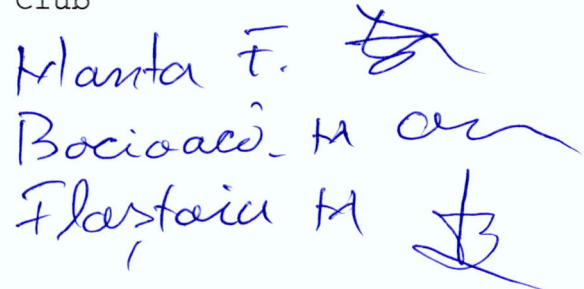 Club
Manta F.
Bocioacă M
Flaștoiu M